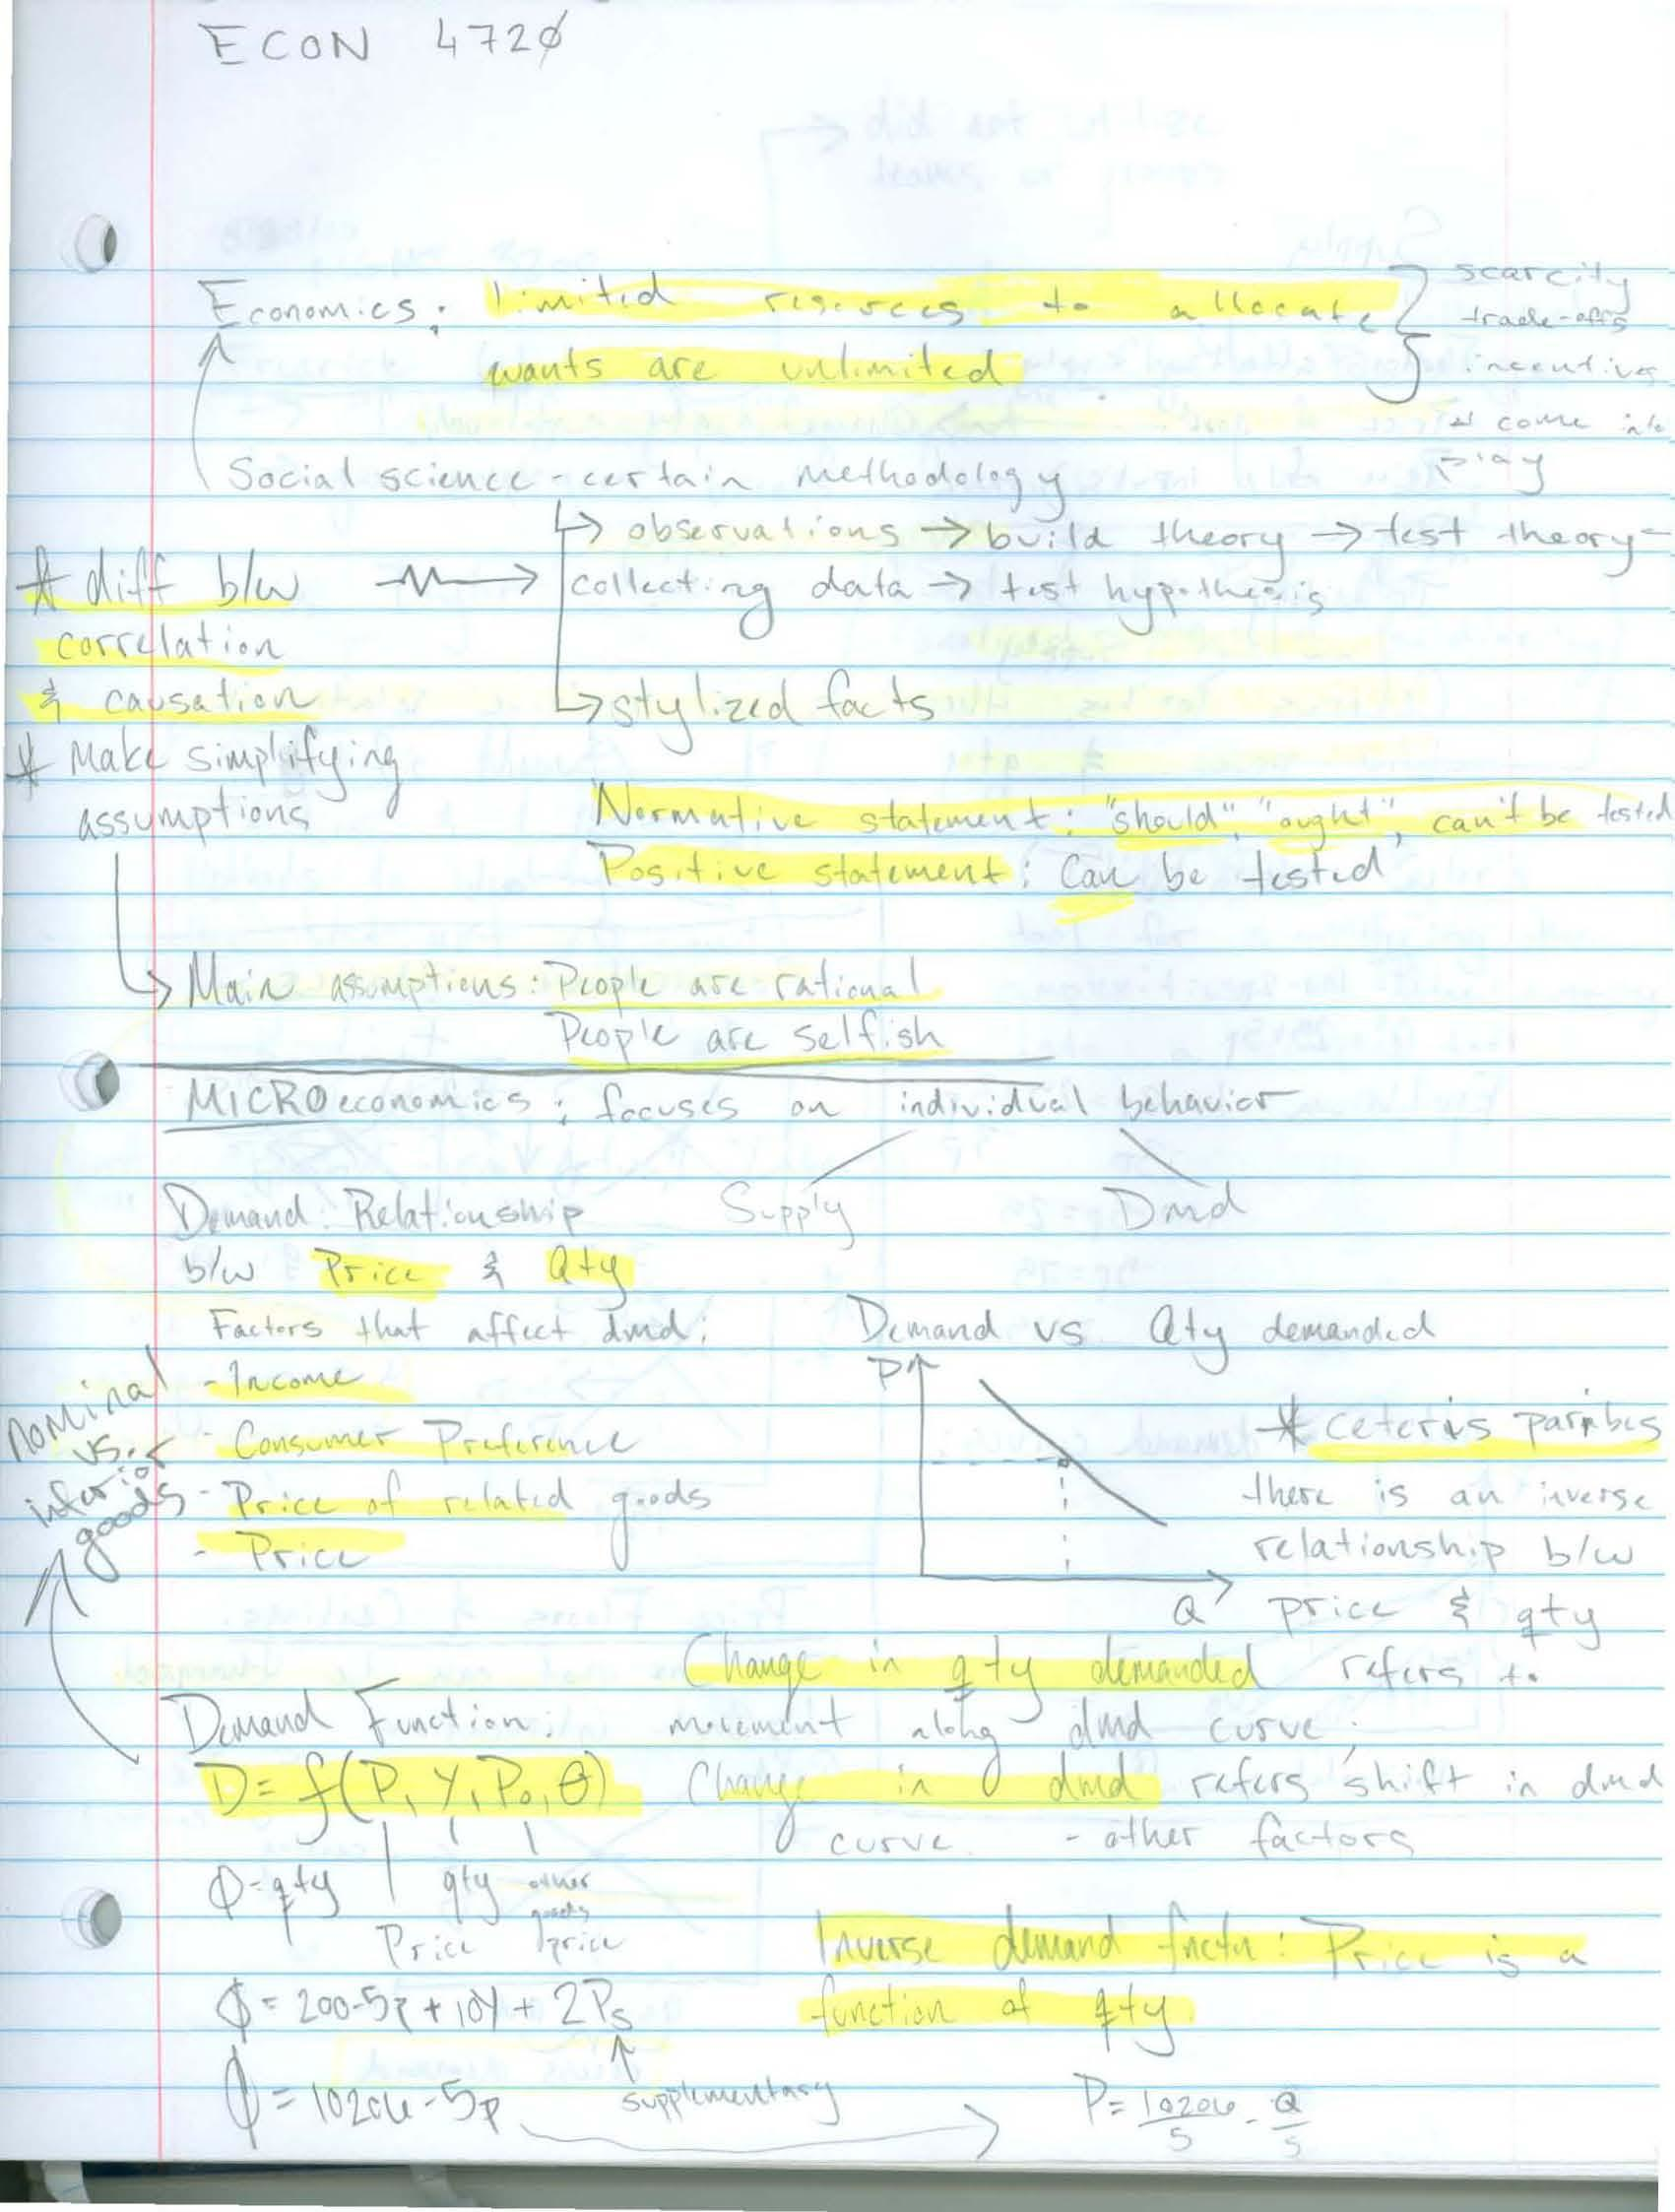 ECON 4720
Economics: limited resources to allocate
wants are unlimited
scarcity
trade-offs
incentives
come into
play
Social science - certain methodology
→ observations → build theory → test theory -
collecting data → test hypothesis
* diff b/w
correlation
& causation
→ stylized facts
* Make simplifying
assumptions
Normative statement: "should", "ought", can't be tested
Positive statement: Can be tested
→ Main assumptions: People are rational
People are selfish
MICROeconomics: focuses on individual behavior
Supply Dmd
Demand: Relationship
b/w Price & Qty
Factors that affect dmd:
- Income
- Consumer Preference
- Price of related goods
- Price
nominal
vs.
inferior
goods
Demand vs Qty demanded
P
Q
* ceteris paribus
there is an inverse
relationship b/w
price & qty
Change in qty demanded refers to
movement along dmd curve.
Change in dmd refers shift in dmd
curve - other factors
Demand Function:
D = f(P, Y, Po, θ)
Φ = qty
Price
qty
other
goods
price
Inverse demand fnctn: Price is a
function of qty
Φ = 200 - 5p + 10Y + 2Ps
supplementary
Φ = 10206 - 5p
P = 10206/5 - Q/5